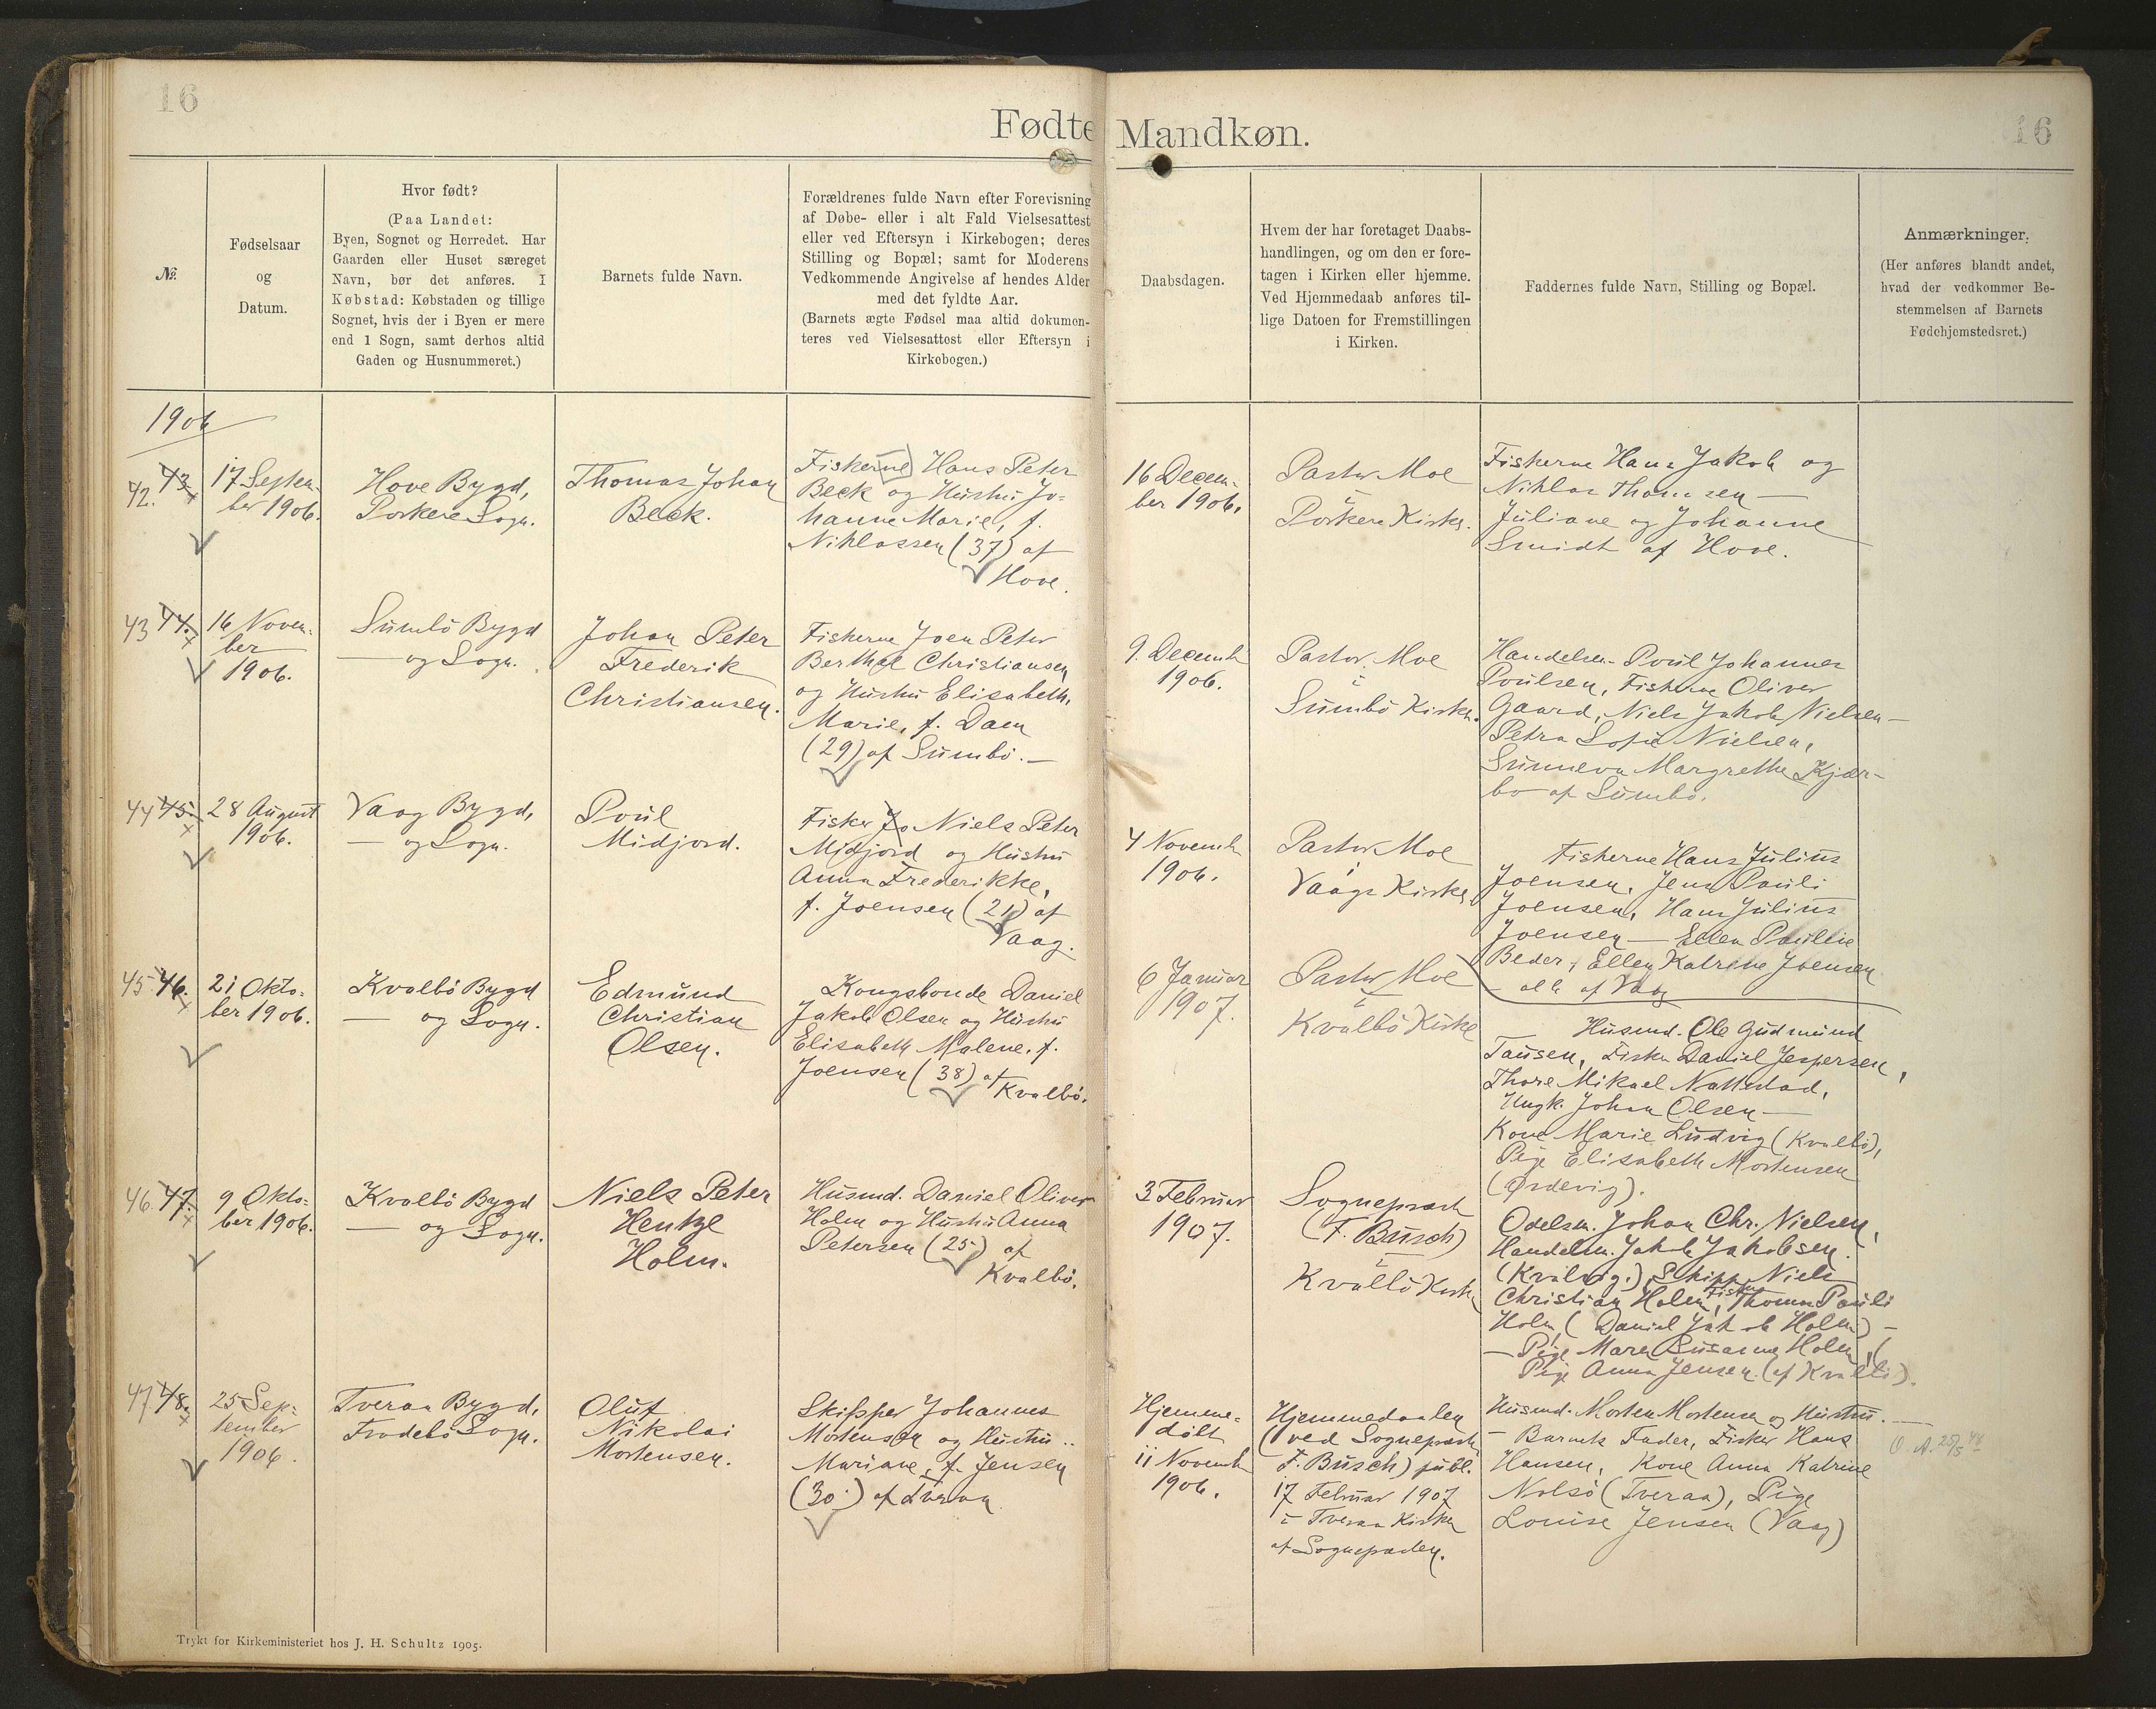 16
16
Fødte Mandkøn.
№.
Fødselsaar
og
Datum.
Hvor født?
(Paa Landet:
Byen, Sognet og Herredet. Har
Gaarden eller Huset særeget
Navn, bør det anføres. I
Købstad: Købstaden og tillige
Sognet, hvis der i Byen er mere
end 1 Sogn, samt derhos altid
Gaden og Husnummeret.)
Barnets fulde Navn.
Forældrenes fulde Navn efter Forevisning
af Døbe- eller i alt Fald Vielsesattest
eller ved Eftersyn i Kirkebogen; deres
Stilling og Bopæl; samt for Moderens
Vedkommende Angivelse af hendes Alder
med det fyldte Aar.
(Barnets ægte Fødsel maa altid dokumen-
teres ved Vielsesattest eller Eftersyn i
Kirkebogen.)
Daabsdagen.
Hvem der har foretaget Daabs-
handlingen, og om den er fore-
tagen i Kirken eller hjemme.
Ved Hjemmedaab anføres til-
lige Datoen for Fremstillingen
i Kirken.
Faddernes fulde Navn, Stilling og Bopæl.
Anmærkninger.
(Her anføres blandt andet,
hvad der vedkommer Be-
stemmelsen af Barnets
Fødehjemstedsret.)
1906
42. 43
17 Septem-
ber 1906.
Hove Bygd,
Porkere Sogn.
Thomas Johan
Beck.
Fiskerne Hans Peter
Beck og Hustru Jo-
hanne Marie, f.
Niklassen (37) af
Hove.
16 Decem-
ber 1906.
Pastor Moe
i
Porkere Kirke.
Fiskerne Hans Jakob og
Niklas Thomsen —
Juliane og Johanne
Smidt af Hove.
43 44.
16 Novem-
ber
1906.
Sumbö Bygd
— og Sogn.
Johan Peter
Frederik
Christiansen.
Fiskerne Joen Peter
Berthel Christiansen
og Hustru Elisabeth
Marie, f. Dam
(29) af Sumbö. —
9. Decemb
1906.
Pastor Moe
i
Sumbö Kirke.
Handelsm. Poul Johannes
Poulsen, Fiskerne Oliver
Gaard, Niels Jakob Nielsen —
Petra Sofie Nielsen,
Sunneva Margrethe Kjær-
bo af Sumbö.
44 45.
28 August
1906.
Vaag Bygd,
— og Sogn.
Poul
Midjord.
Fisker Jo Niels Peter
Midjord og Hustru
Anna Frederikke,
f. Joensen (21) af
Vaag.
4 Novemb
1906.
Pastor Moe
i
Vaags Kirke
Fiskerne Hans Julius
Joensen, Jens Pauli
Joensen, Hans Julius
Joensen — Ellen Pauline
Beder, Ellen Katrine Joensen
— alle af Vaag
45 46.
21 Okto-
ber 1906.
Kvalbö Bygd
— og Sogn.
Edmund
Christian
Olsen.
Kongsbonde Daniel
Jakob Olsen og Hustru
Elisabeth Malene, f.
Joensen (38) af
Kvalbö.
6 Januar
1907.
Pastor Moe
i
Kvalbö Kirke
Husmd. Ole Gudmund
Tausen, Fisker Daniel Jespersen,
Thore Mikael Nattestad,
Ungk. Johan Olsen —
Kone Marie Ludvig (Kvalbö),
Pige Elisabeth Mortensen
(Ørdevig).
46. 47.
9 Okto-
ber 1906.
Kvalbö Bygd
— og Sogn.
Niels Peter
Hentze
Holm.
Husmd. Daniel Oliver
Holm og Hustru Anna
Petersen (25) af
Kvalbö.
3 Februar
1907.
Sognepræst
(F. Busch)
i
Kvalbö Kirke
Odelsm. Johan Chr. Nielsen,
Handelsm. Jakob Jakobsen.
(Kvalvig.), Skipp. Niels
Christian Holm, Fisker Thomas Pauli
Holm (Daniel Jakob Holm) —
— Pige Maren Susanna Holm,
Pige Anna Jensen. (af Kvalbö).
47 48.
25 Sep-
tember
1906.
Tveraa Bygd,
Frodebö Sogn.
Oluf
Nikolai
Mortensen.
Skipper Johannes
Mortensen og Hustru
Mariane, f. Jensen
(30) af Tveraa
Hjemme-
döbt
11 Novemb
1906.
Hjemmedaaben
(ved Sognepræst
F. Busch) publ.
17 Februar 1907
i Tveraa Kirke
af Sognepræsten.
Husmd. Morten Mortensen og Hustru. —
— Barnets Fader, Fisker Hans
Hansen, Kone Anna Katrine
Nolsö (Tveraa), Pige
Louise Jensen (Vaag)
D. A. 25/5 48
Trykt for Kirkeministeriet hos J. H. Schultz 1905.